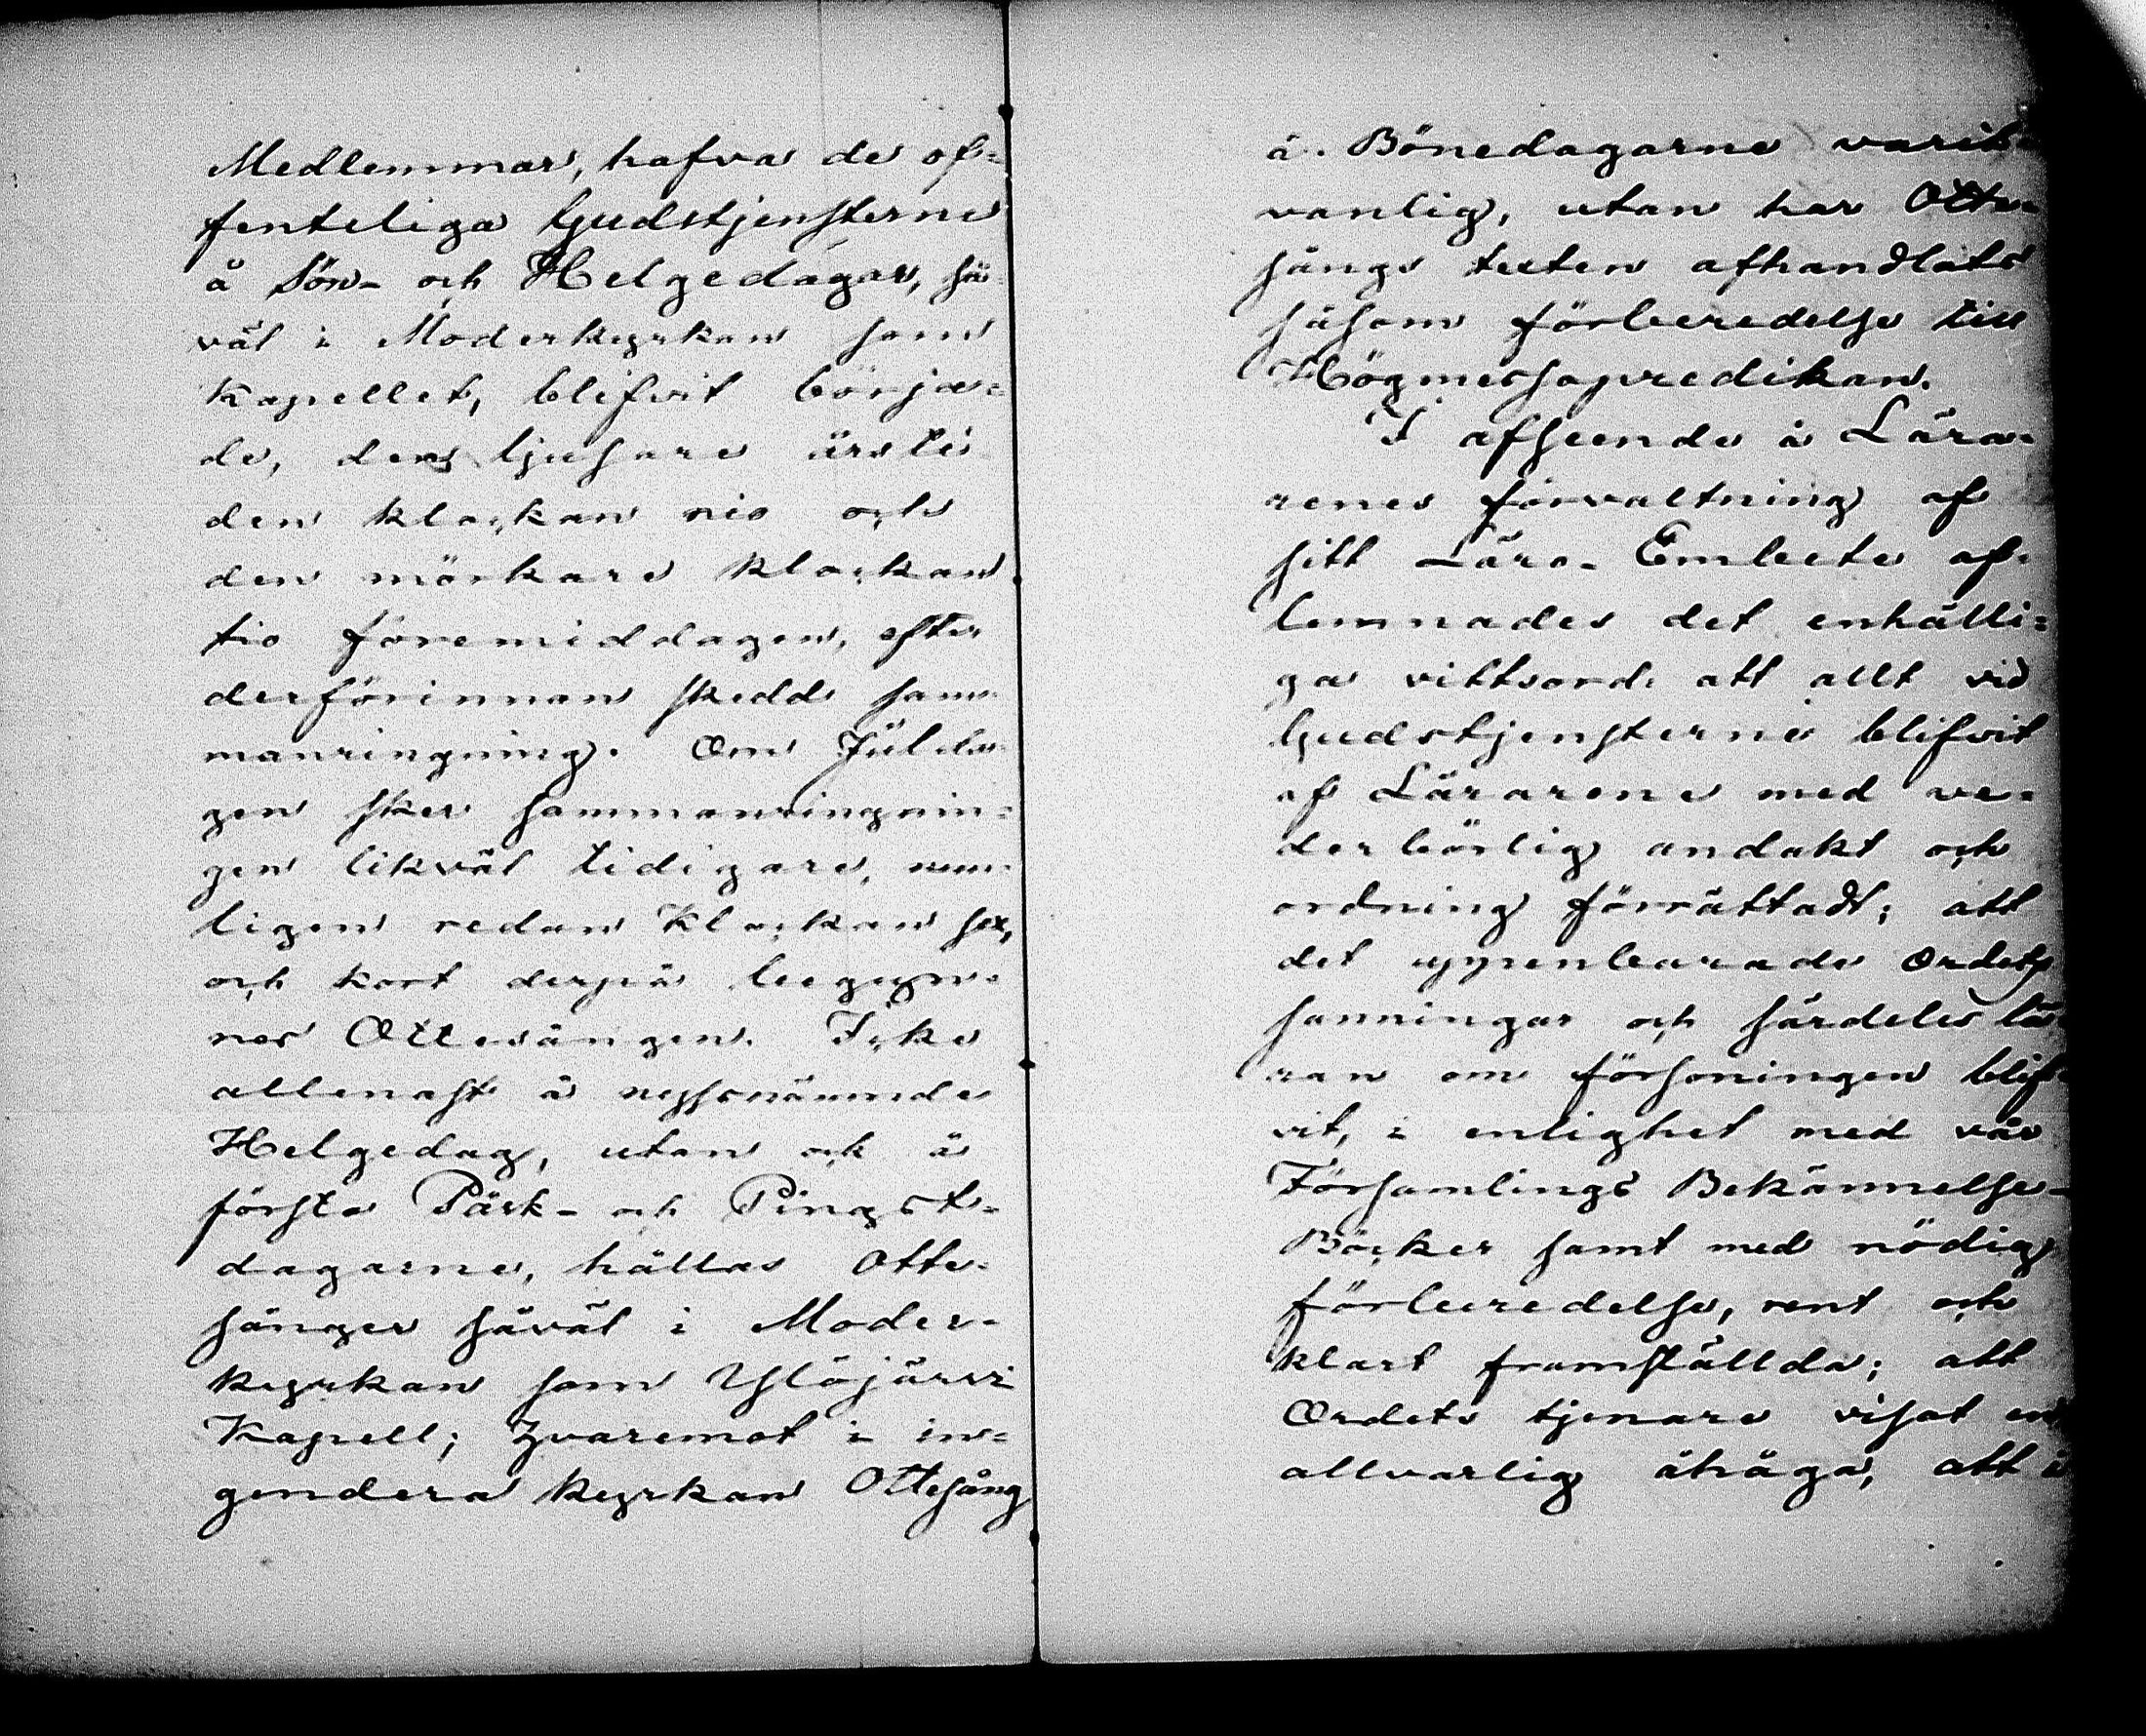 Medlemmar, hafva de of=
fenteliga Gudstjensterne
å Sön- och Helgedagar, så=
väl i Moderkyrkan som
Kapellet, blifvit börja=
de, den ljusare årsti
den klockan nio och
den mörkare klockan
tio föremiddagen, efter
derförinnan skedd sam=
manringning. Om Juleda=
gen sker sammanringnin=
gen likväl tidigare, nem=
ligen redan klockan sex,
och kort derpå begyn=
nes Ottesången. Icke
allenast å nyssnämnde
Helgedag, utan ock å
första Påsk- och Pingst=
dagarne, hållas Otte=
sånger såväl i Moder-
kyrkan som Ylöjärvi
Kapell; hvaremot i in=
gendera kyrkan Ottesång
å Bönedagarne varit
vanlig, utan har Otte=
sångs texten afhandlats
såsom förberedelse till
Högmessopredikan.
I afseende å Lära=
renes förvaltning af
sitt Läro-Embete af=
lemnades det enhälli=
ga vittsord: att allt vid
Gudstjensterne blifvit
af Lärarene med ve=
derbörlig andakt och
ordning förrättadt; att
det uppenbarade Ordets
sanningar och särdeles lä=
ran om försoningen blif=
vit, i enlighet med vår
Församlings Bekännelse-
Böcker samt med nödig
förberedelse, rent och
klart framställda; att
Ordets tjenare visat en
allvarlig åhåga, att å